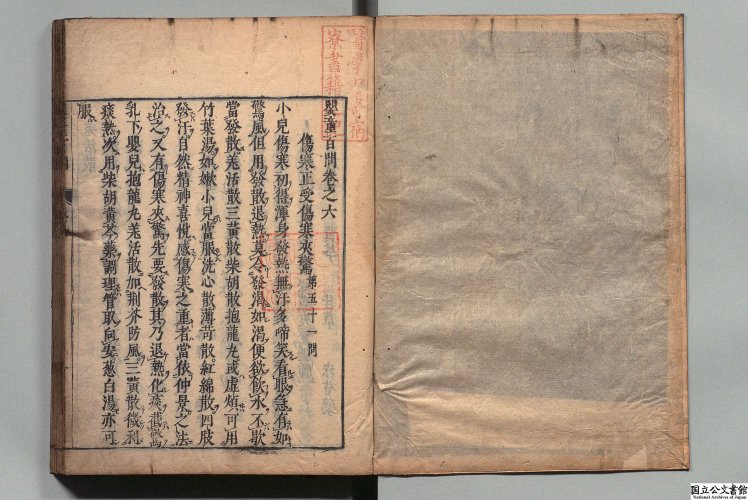 嬰童百問卷之六
傷寒正受傷寒夾驚 第五十一問
小兒傷寒初得渾身發熱無汗多啼哭看眼急有如
驚風但用發散退熱莫令發渴如渴便欲飲水不歇
當發散羌活散三黃散柴胡散抱龍丸或虛煩可用
竹葉湯如嗽小兒當服洗心散薄荷散紅綿散四肢
發汗自然精神喜悅感傷寒之重者當依仲景之法
治之又有傷寒夾驚先要發散其乃退熱化痰截驚
乳下嬰兒抱龍丸羌活散加荆芥防風三黃散微利
痰熱次用柴胡黃芩藥調理管取向安葱白湯亦可
服
國立公文書館
National Archives of Japan